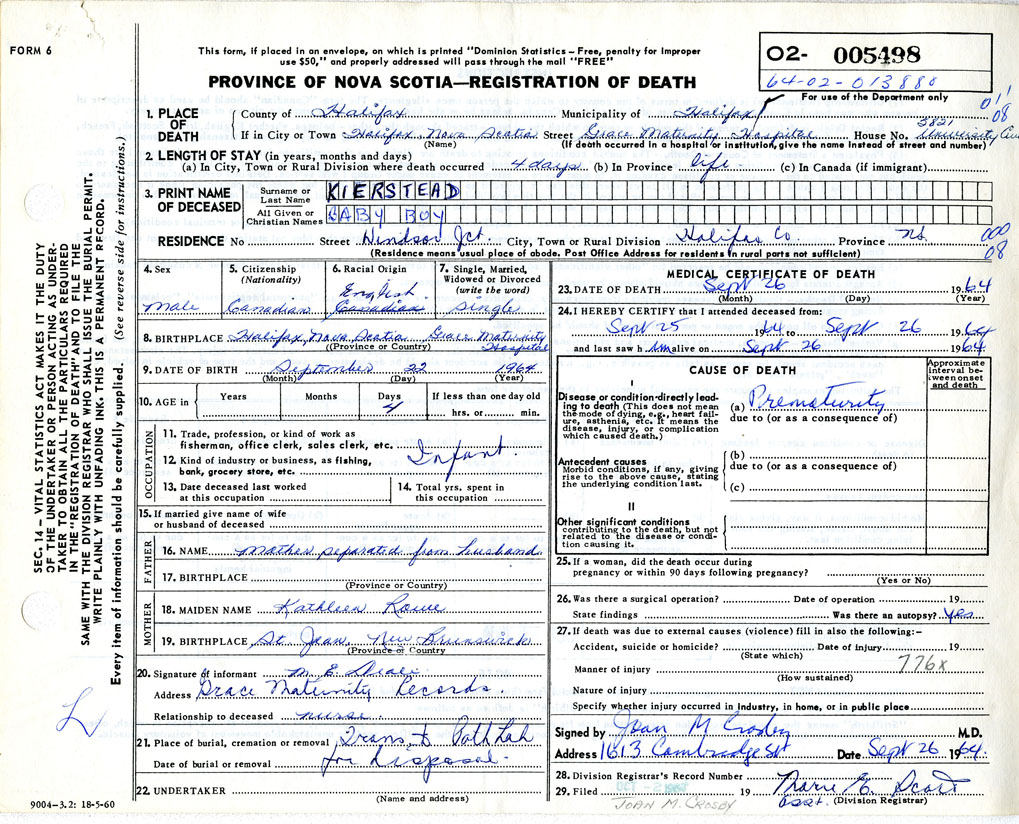 FORM 6
This form, if placed in an envelope, on which is printed "Dominion Statistics – Free, penalty for improper
use $50," and properly addressed will pass through the mail "FREE"
PROVINCE OF NOVA SCOTIA—REGISTRATION OF DEATH
02- 005498
64-02-013880
For use of the Department only
011
08
1. PLACE OF DEATH
County of Halifax Municipality of Halifax
5821
If in City or Town Halifax Nova Scotia Street Grace Maternity Hospital House No. University Ave
(Name) (If death occurred in a hospital or institution, give the name instead of street and number)
2. LENGTH OF STAY (in years, months and days)
(a) In City, Town or Rural Division where death occurred 4 days (b) In Province life (c) In Canada (if immigrant)
3. PRINT NAME OF DECEASED
Surname or Last Name KIERSTEAD
All Given or Christian Names BABY BOY
RESIDENCE No Street Windsor Jct. City, Town or Rural Division Halifax Co. Province NS.
000
08
(Residence means usual place of abode. Post Office Address for residents in rural parts not sufficient)
4. Sex
Male
5. Citizenship (Nationality)
Canadian
6. Racial Origin
English
Canadian
7. Single, Married, Widowed or Divorced (write the word)
Single
8. BIRTHPLACE Halifax, Nova Scotia Grace Maternity Hospital
(Province or Country)
9. DATE OF BIRTH September 22 1964
(Month) (Day) (Year)
10. AGE in Years Months Days If less than one day old
4 hrs. or min.
OCCUPATION
11. Trade, profession, or kind of work as fisherman, office clerk, sales clerk, etc.
12. Kind of industry or business, as fishing, bank, grocery store, etc.
Infant.
13. Date deceased last worked at this occupation
14. Total yrs. spent in this occupation
15. If married give name of wife or husband of deceased
FATHER
16. NAME Mother separated from husband
17. BIRTHPLACE
(Province or Country)
MOTHER
18. MAIDEN NAME Kathleen Rowe
19. BIRTHPLACE St. Jean, New Brunswick
(Province or Country)
20. Signature of informant M. E.
Address Grace Maternity Records.
Relationship to deceased nurse.
21. Place of burial, cremation or removal Trans. to Path Lab
Date of burial or removal for disposal.
22. UNDERTAKER
(Name and address)
9004–3.2: 18-5-60
MEDICAL CERTIFICATE OF DEATH
23. DATE OF DEATH Sept 26 1964
(Month) (Day) (Year)
24. I HEREBY CERTIFY that I attended deceased from:
Sept 25 1964 to Sept 26 1964
and last saw him alive on Sept 26 1964
CAUSE OF DEATH
Approximate interval between onset and death
I
Disease or condition directly leading to death (This does not mean the mode of dying, e.g., heart failure, asthenia, etc. It means the disease, injury, or complication which caused death.)
(a) Prematurity
due to (or as a consequence of)
Antecedent causes
Morbid conditions, if any, giving rise to the above cause, stating the underlying condition last.
(b)
due to (or as a consequence of)
(c)
II
Other significant conditions
contributing to the death, but not related to the disease or condition causing it.
25. If a woman, did the death occur during pregnancy or within 90 days following pregnancy?
(Yes or No)
26. Was there a surgical operation? Date of operation 19
State findings Was there an autopsy? Yes
27. If death was due to external causes (violence) fill in also the following:–
Accident, suicide or homicide? Date of injury 19
(State which)
776X
Manner of injury
(How sustained)
Nature of injury
Specify whether injury occurred in industry, in home, or in public place
Signed by Joan M Crosby M.D.
Address 1613 Cambridge St Date Sept 26 1964.
28. Division Registrar's Record Number
29. Filed 19 Marie E. Scott
asst. (Division Registrar)
JOAN M. CROSBY
SEC. 14 – VITAL STATISTICS ACT MAKES IT THE DUTY
OF THE UNDERTAKER OR PERSON ACTING AS UNDER-
TAKER TO OBTAIN ALL THE PARTICULARS REQUIRED
IN THE "REGISTRATION OF DEATH" AND TO FILE THE
SAME WITH THE DIVISION REGISTRAR WHO SHALL ISSUE THE BURIAL PERMIT.
WRITE PLAINLY WITH UNFADING INK. THIS IS A PERMANENT RECORD.
Every item of information should be carefully supplied. (See reverse side for instructions.)